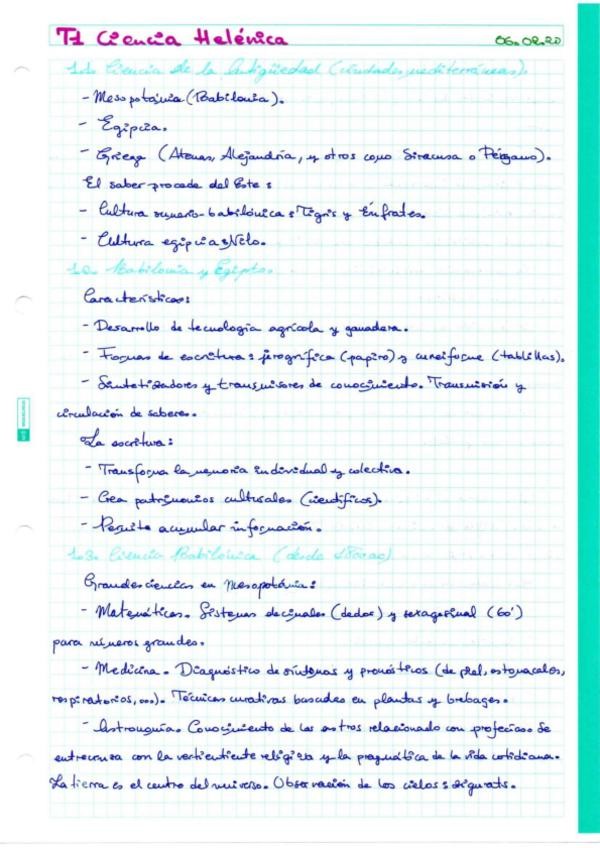 T1 Ciencia Helénica
06.02.20
1.1. Ciencia de la Antigüedad (ciudades mediterráneas).
- Mesopotamia (Babilonia).
- Egipcia.
- Griega (Atenas, Alejandría, y otros como Siracusa o Pérgamo).
El saber procede del Este:
- Cultura sumerio-babilónica: Tigris y Éufrates.
- Cultura egipcia: Nilo.
1.2. Babilonia y Egipto.
Características:
- Desarrollo de tecnología agrícola y ganadera.
- Formas de escritura: jerogrífica (papiro) y cuneiforme (tablillas).
- Sintetizadores y transmisores de conocimiento. Transmisión y
circulación de saberes.
La escritura:
- Transforma la memoria individual y colectiva.
- Crea patrimonios culturales (científicos).
- Permite acumular información.
1.3. Ciencia Babilónica (desde 1800ac)
Grandes ciencias en Mesopotamia:
- Matemáticas. Sistemas decimales (dedos) y sexagesimal (60')
para números grandes.
- Medicina. Diagnóstico de síntomas y pronósticos (de piel, estomacales,
respiratorios,...). Técnicas curativas basadas en plantas y brebages.
- Astronomía. Conocimiento de los astros relacionado con profecías. Se
entrecruza con la vertientiente religiosa y la pragmática de la vida cotidiana.
La tierra es el centro del universo. Observación de los cielos: zigurats.